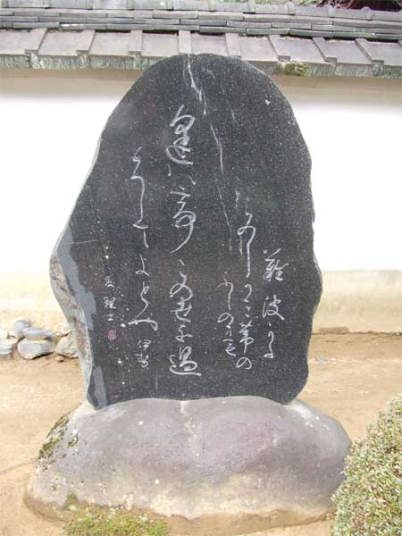 難波かた
みしかき葦の
ふしのまも
逢ハてこの世を過
くしてよとや 伊勢